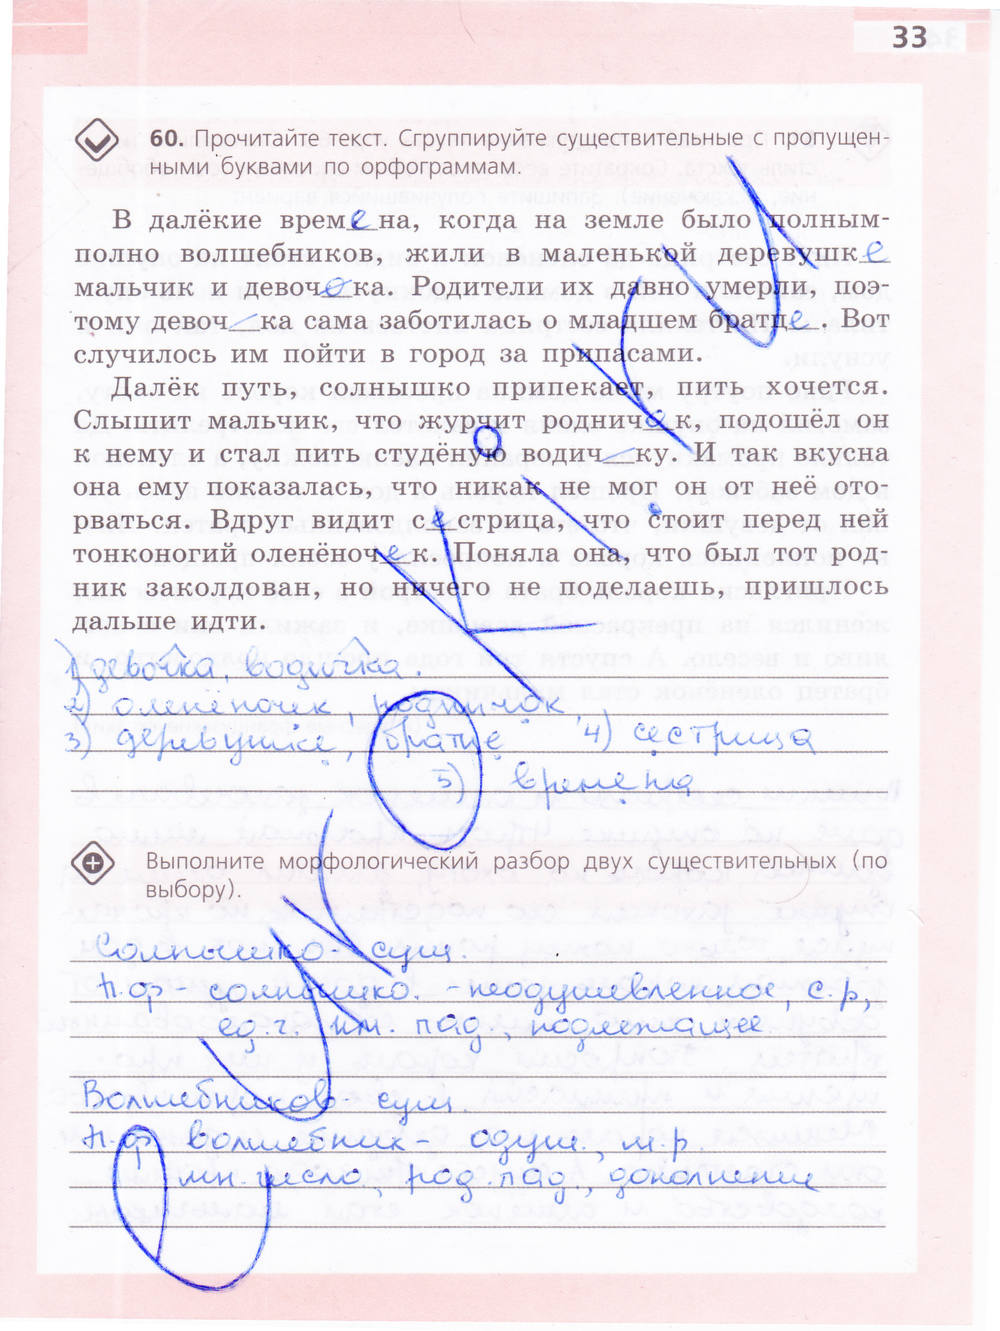 33
60. Прочитайте текст. Сгруппируйте существительные с пропущен-
ными буквами по орфограммам.
В далёкие времена, когда на земле было полным-
полно волшебников, жили в маленькой деревушке
мальчик и девочка. Родители их давно умерли, поэ-
тому девоч_ка сама заботилась о младшем братце. Вот
случилось им пойти в город за припасами.
Далёк путь, солнышко припекает, пить хочется.
Слышит мальчик, что журчит родничок, подошёл он
к нему и стал пить студёную водич_ку. И так вкусна
она ему показалась, что никак не мог он от неё ото-
рваться. Вдруг видит сестрица, что стоит перед ней
тонконогий оленёночек. Поняла она, что был тот род-
ник заколдован, но ничего не поделаешь, пришлось
дальше идти.
1) девочка, водичка.
2) оленёночек, родничок,
3) деревушке, братце 4) сестрица
5) времена
Выполните морфологический разбор двух существительных (по
выбору).
Солнышко - сущ.
Н.ф. солнышко. - неодушевленное, с.р,
ед.ч. им. пад., подлежащее
Волшебников - сущ.
Н.ф. волшебник - одуш., м.р.
мн. число, род. пад., дополнение